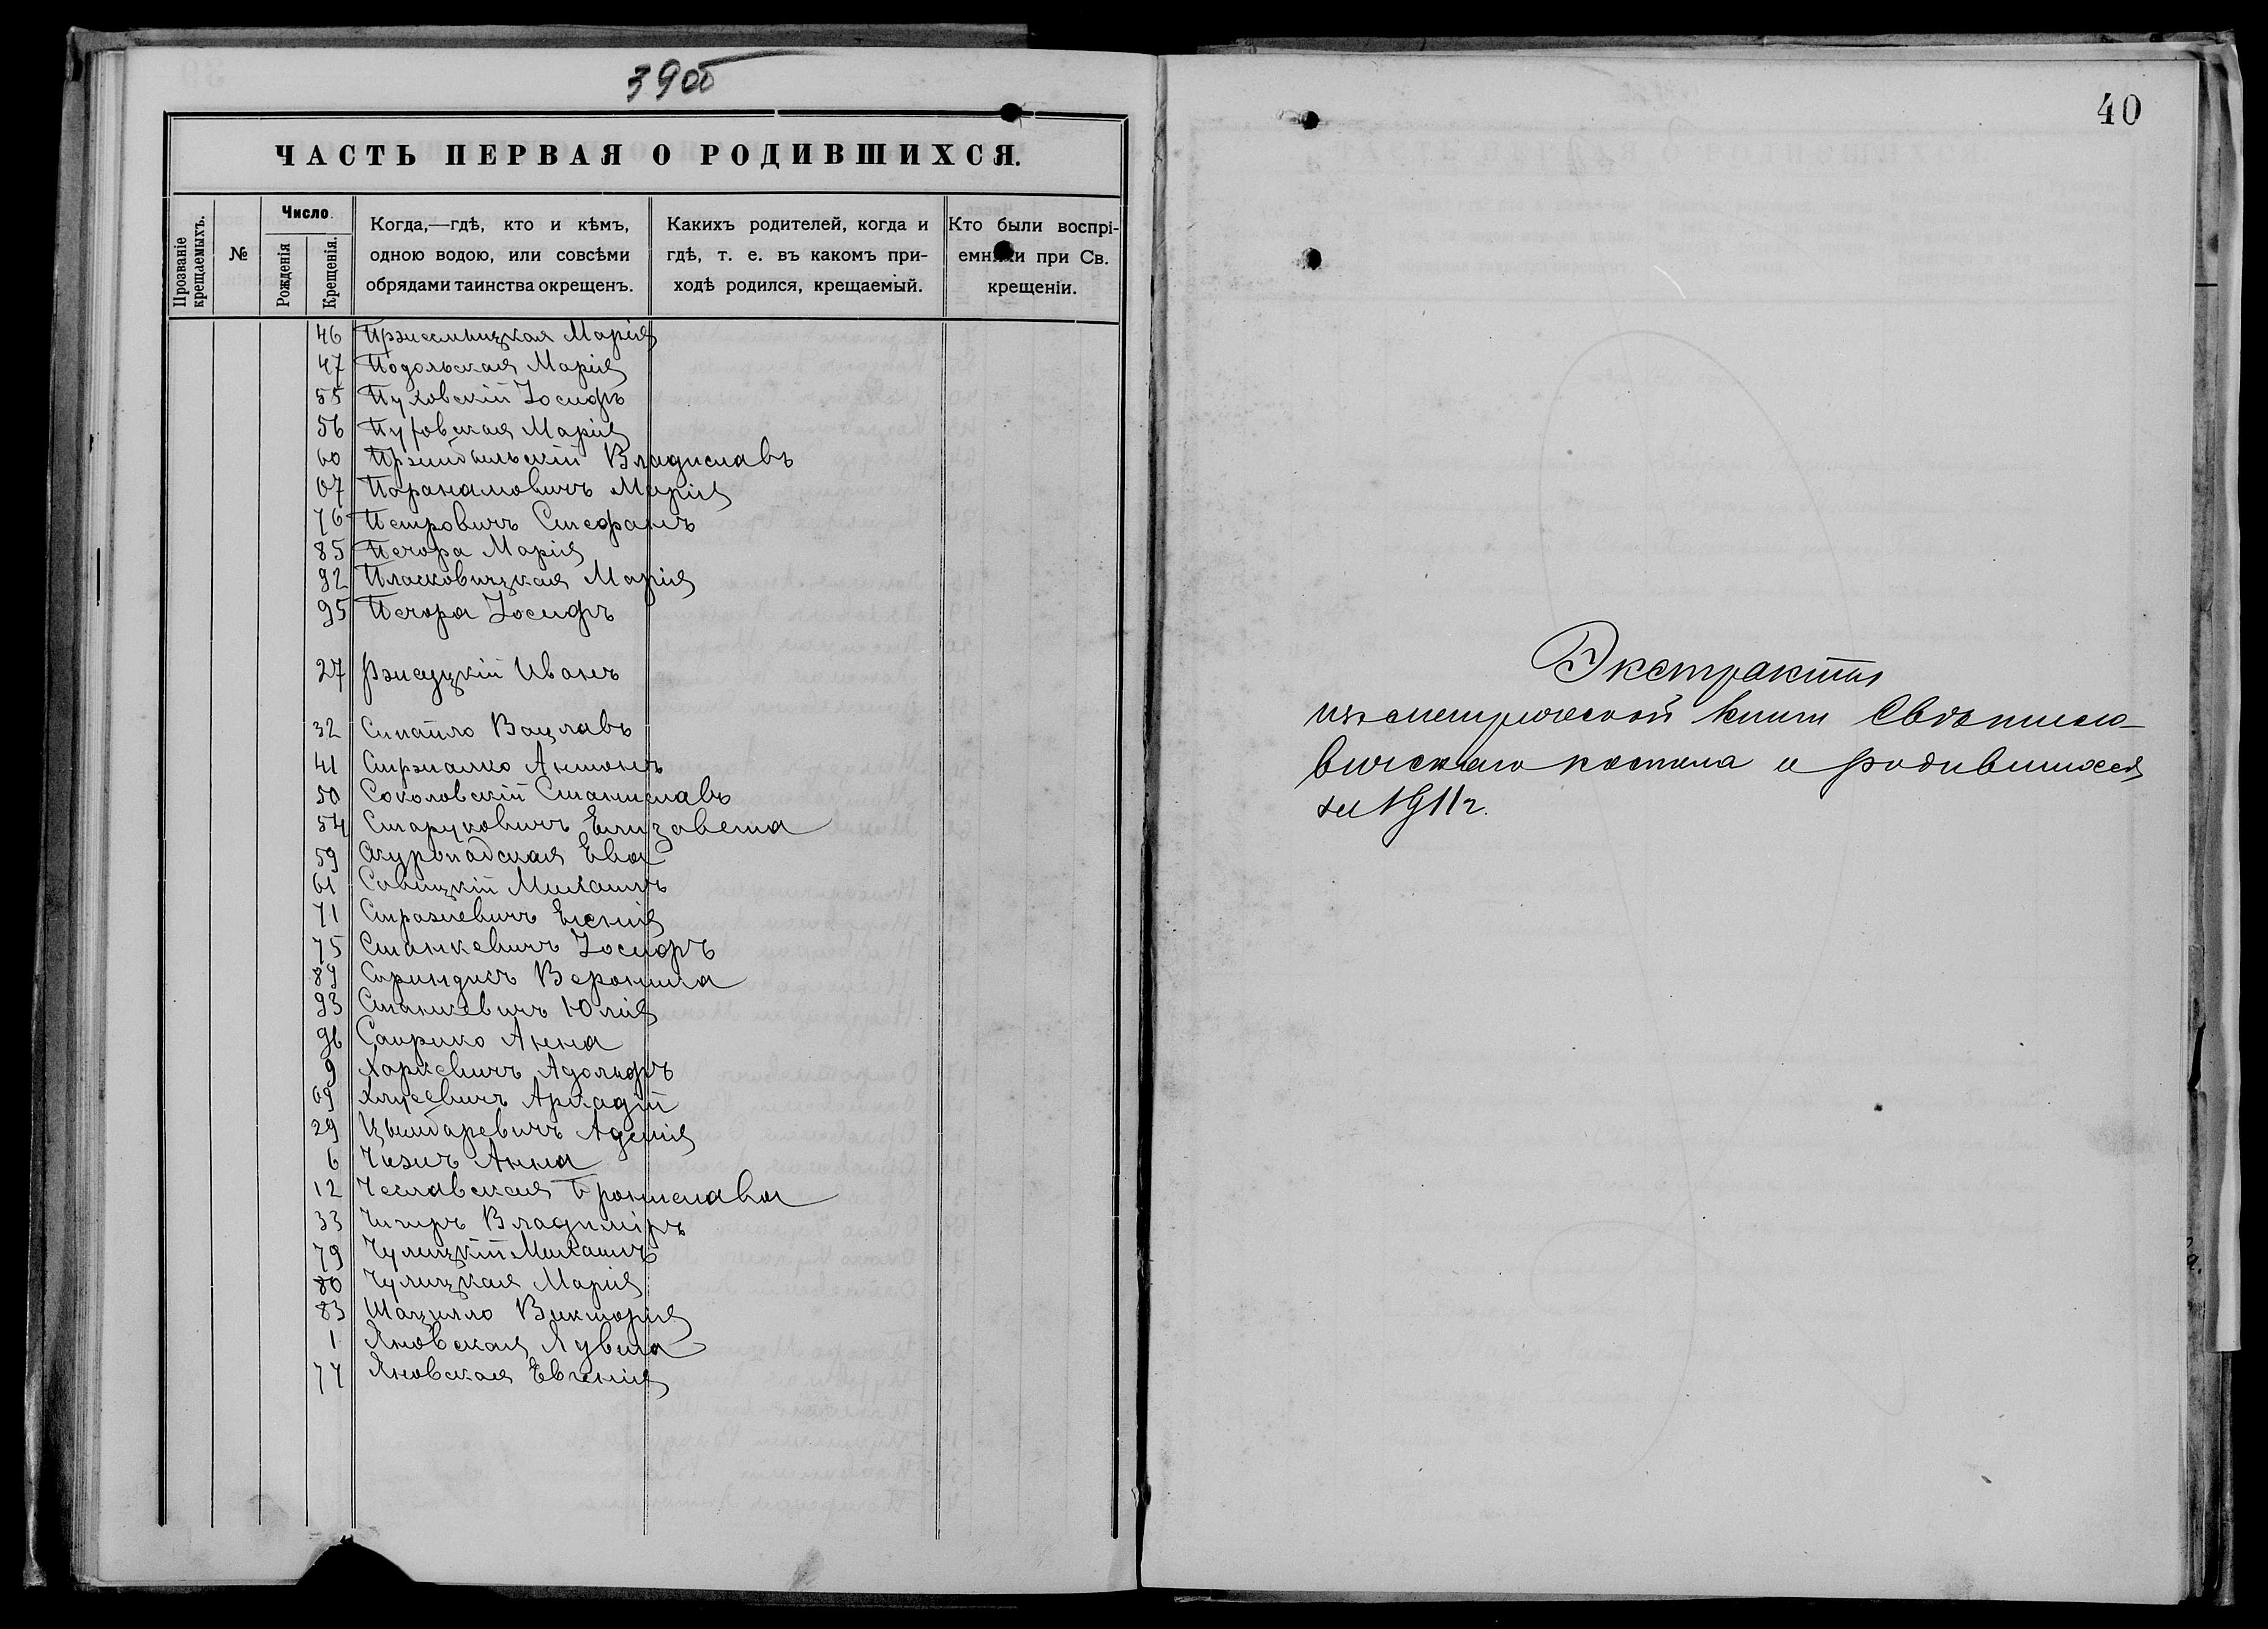 39об
ЧАСТЬ ПЕРВАЯ О РОДИВШИХСЯ.
Прозваніе крещаемыхъ.
№
Число.
Рожденія
Крещенія.
Когда,—гдѣ, кто и кѣмъ,
одною водою, или совсѣми
обрядами таинства окрещенъ.
Какихъ родителей, когда и
гдѣ, т. е. въ какомъ при-
ходѣ родился, крещаемый.
Кто были воспрі-
емники при Св.
крещеніи.
46 Марія
47 Подольская Марія
55 Пуховскій Іосифъ
56 Марія
60 Владиславъ
67 Марія
76 Петровичъ Стефанъ
85 Печора Марія
92 Пласковицкая Марія
95 Печора Іосифъ
27 Ржеуцкій Иванъ
32 Вацлавъ
41 Стржалко Антонъ
50 Соколовскій Станиславъ
54 Старуковичъ Елизавета
59 Ева
61 Савицкій Михаилъ
71 Стражевичъ Ксенія
75 Станкевичъ Іосифъ
89 Вероника
93 Станкевичъ Юлія
96 Анна
9 Харкевичъ Адольфъ
69 Аркадій
29 Аделія
6 Чизичъ Анна
12 Чеславская Бронислава
33 Чигиръ Владиміръ
79 Чулицкій Михаилъ
80 Чулицкая Марія
83 Шацилло Викторія
1 Яновская Ядвига
77 Яновская Евгенія
40
Экстракты
изъ метрической книги
костела о родившихся
за 1911 г.